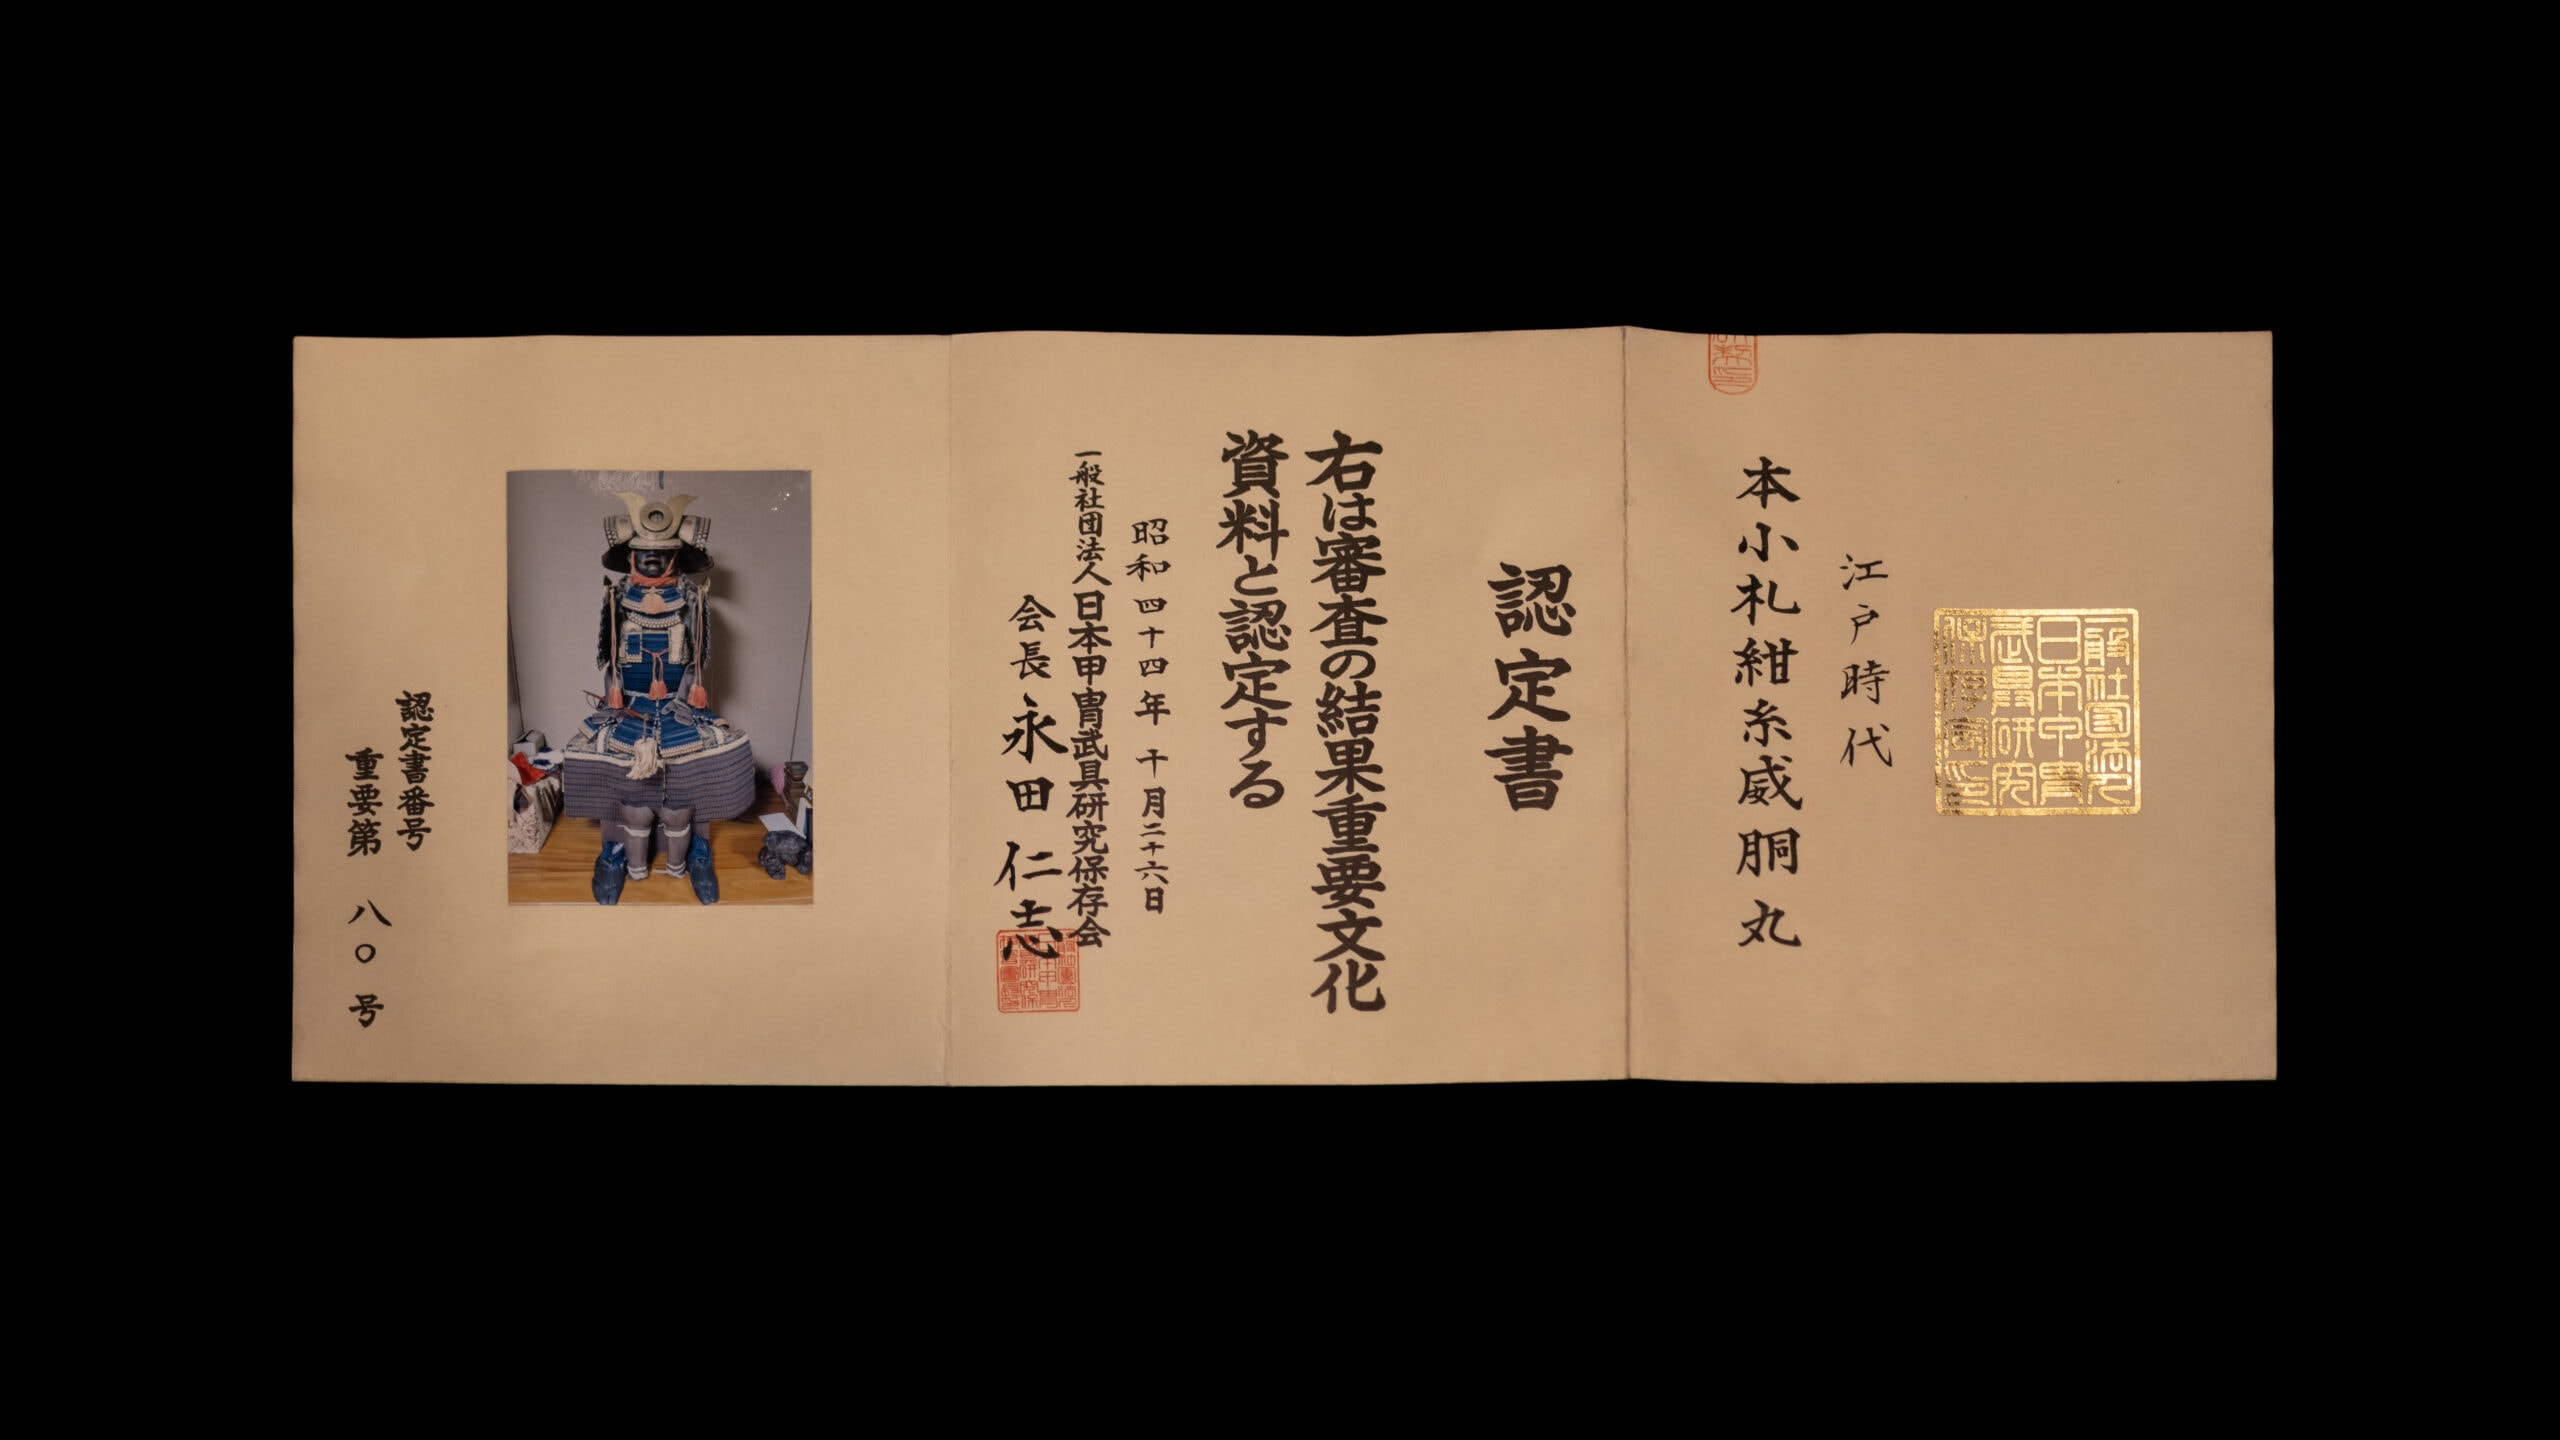 江戸時代
本小札紺糸威胴丸
認定書
右は審査の結果重要文化
資料と認定する
昭和四十四年 十月二十六日
一般社団法人日本甲冑武具研究保存会
会長 永田仁志
認定書番号
重要第 八〇号